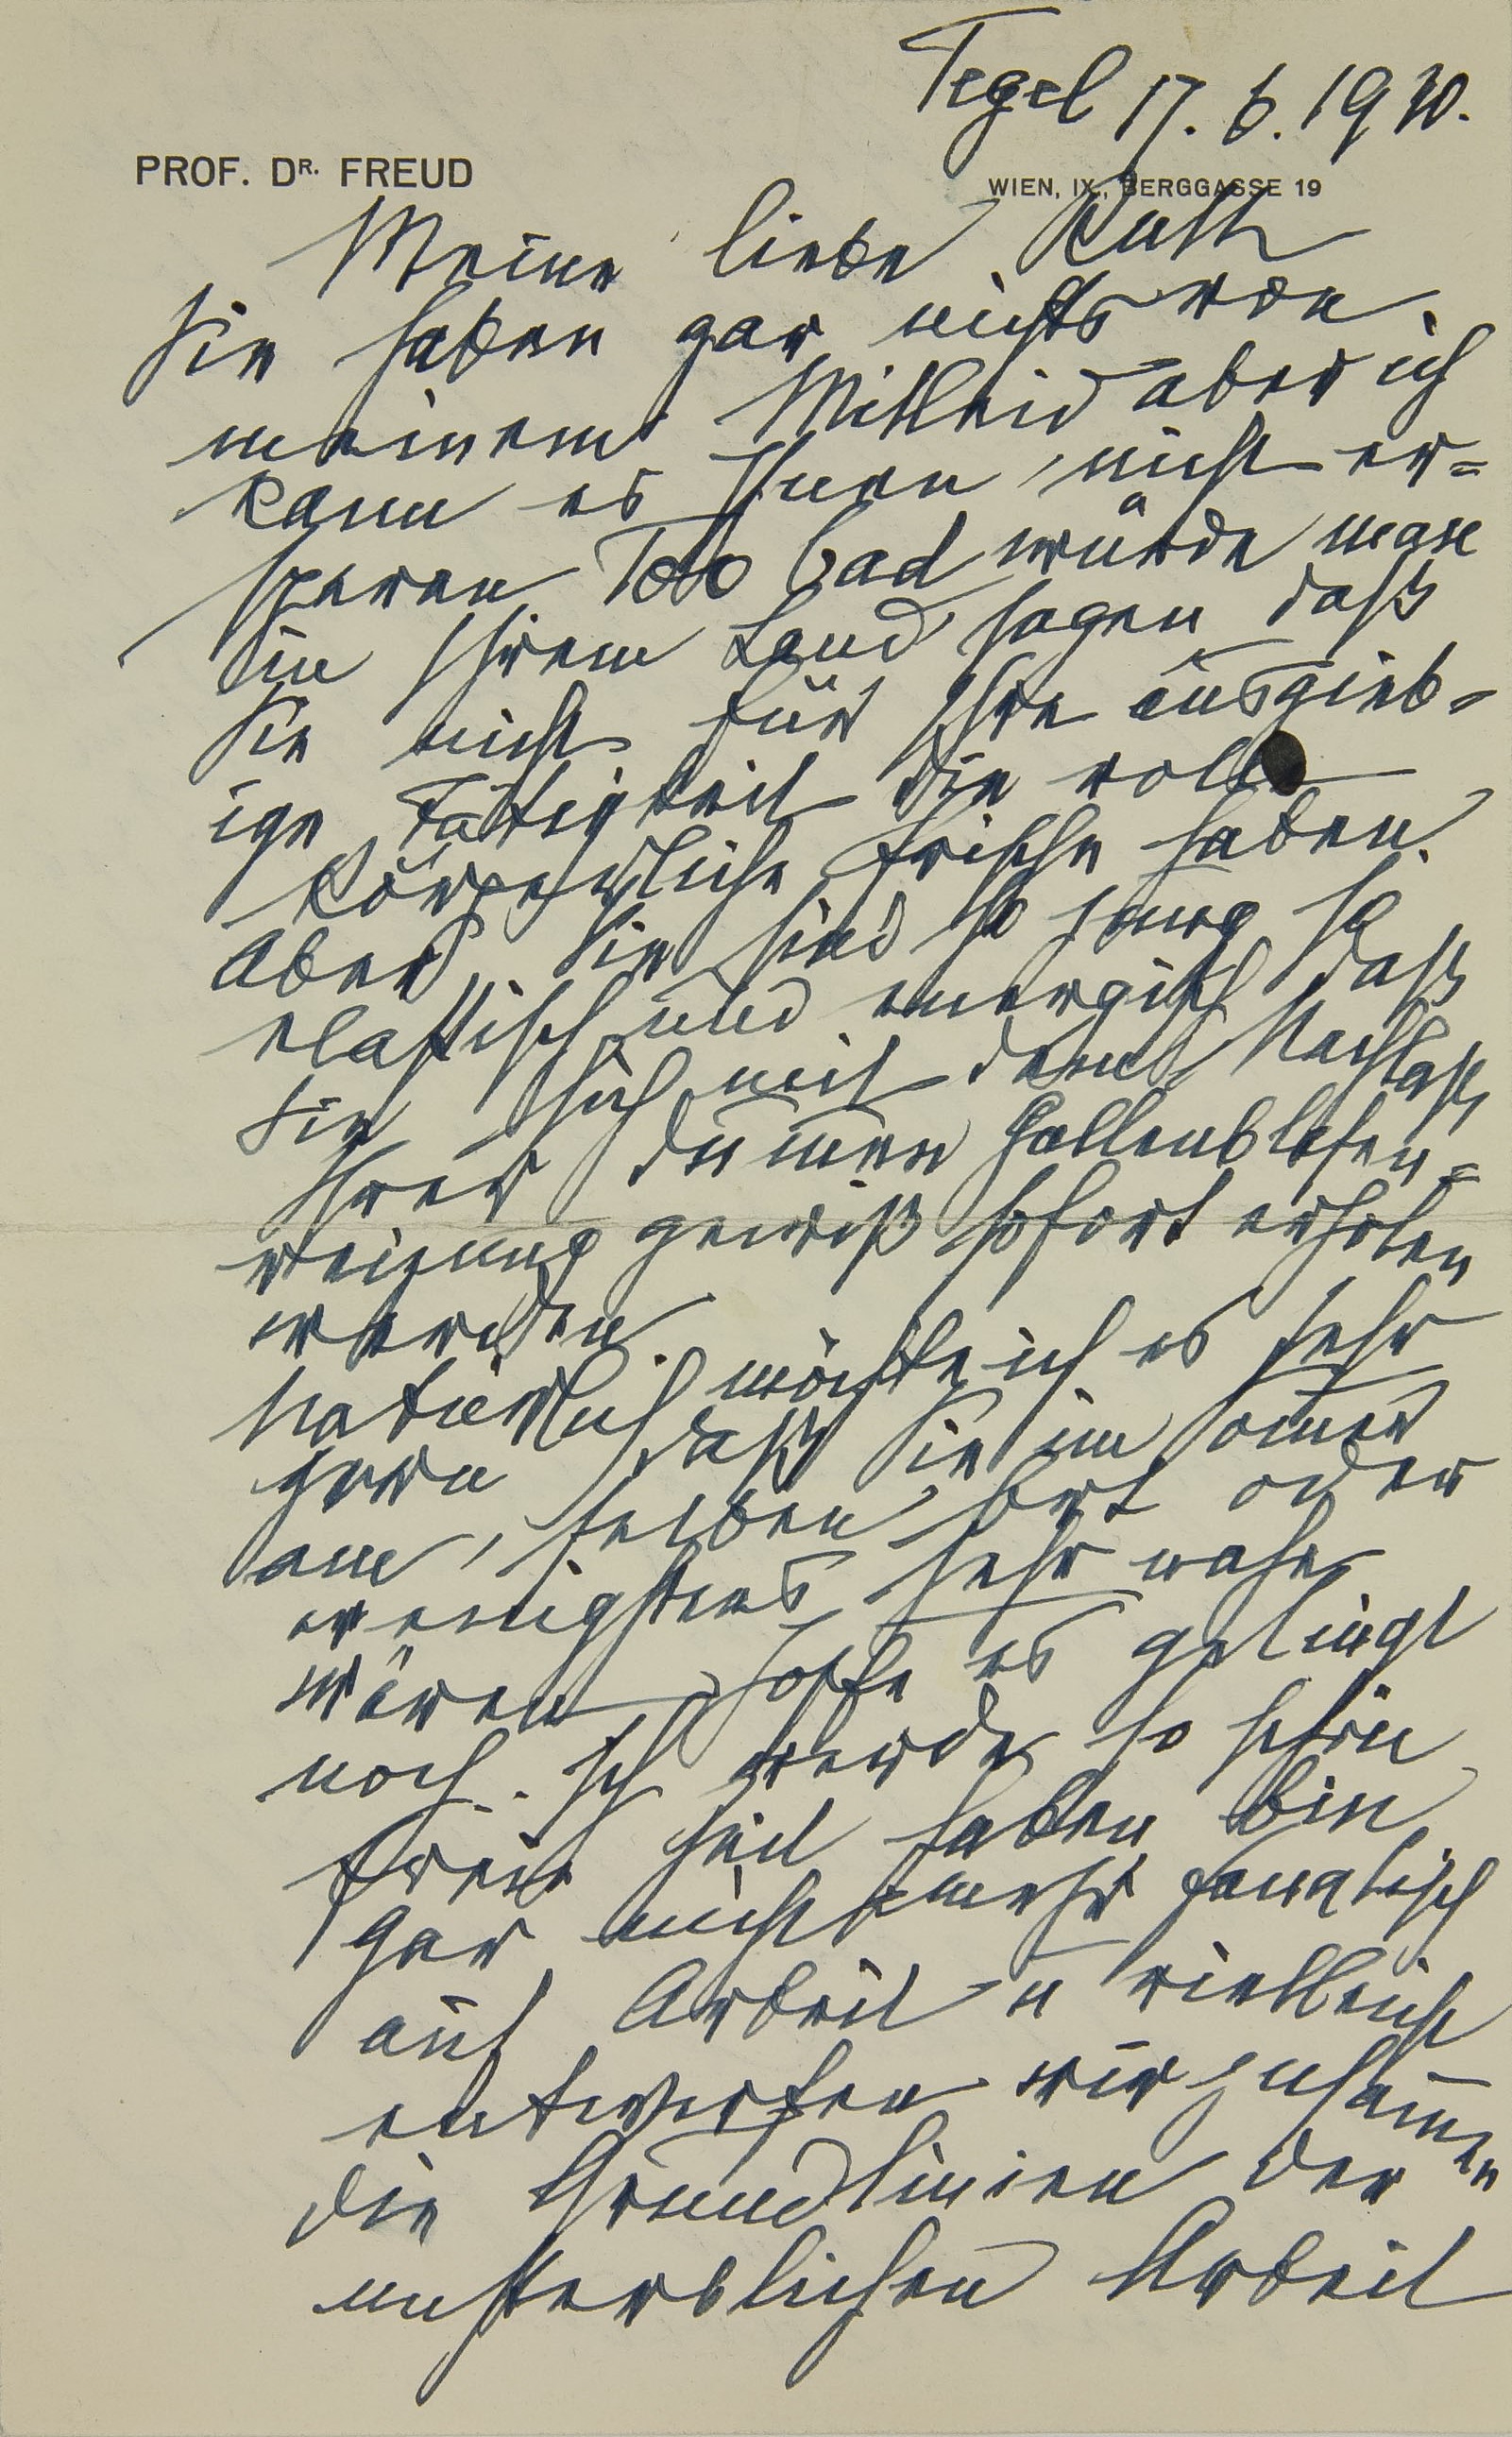 Tegel 17. 6. 1930.
PROF. DR. FREUD
WIEN, IX., BERGGASSE 19
Meine liebe Ruth
Sie haben gar nichts von
meinem Mitleid aber ich
kann es Ihnen nicht er=
sparen. Too bad würde man
in Ihrem Land sagen daß
Sie nicht für Ihre ausgieb-
ige Tätigkeit die volle
körperliche Frische haben.
Aber Sie sind so jung so
elastisch und energisch daß
Sie sich mit dem Nachlaß
Ihrer dum̅en Gallenblasen=
reizung gewiß sofort erholen
werden.
Natürlich möchte ich es sehr
gern daß Sie im Som̅er
am selben Ort oder
wenigstens sehr nahe
wären, hoffe es gelingt
noch. Ich werde so schön
freie Zeit haben bin
gar nicht mehr fanatisch
auf Arbeit u vielleicht
entwerfen wir zusam̅en
die Grundlinien der
unsterblichen Arbeit